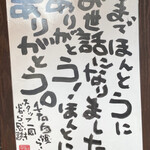 までほんとうに
お世話になりました
ありがとう!ほんとに
ありがとう。
スタッフ一同